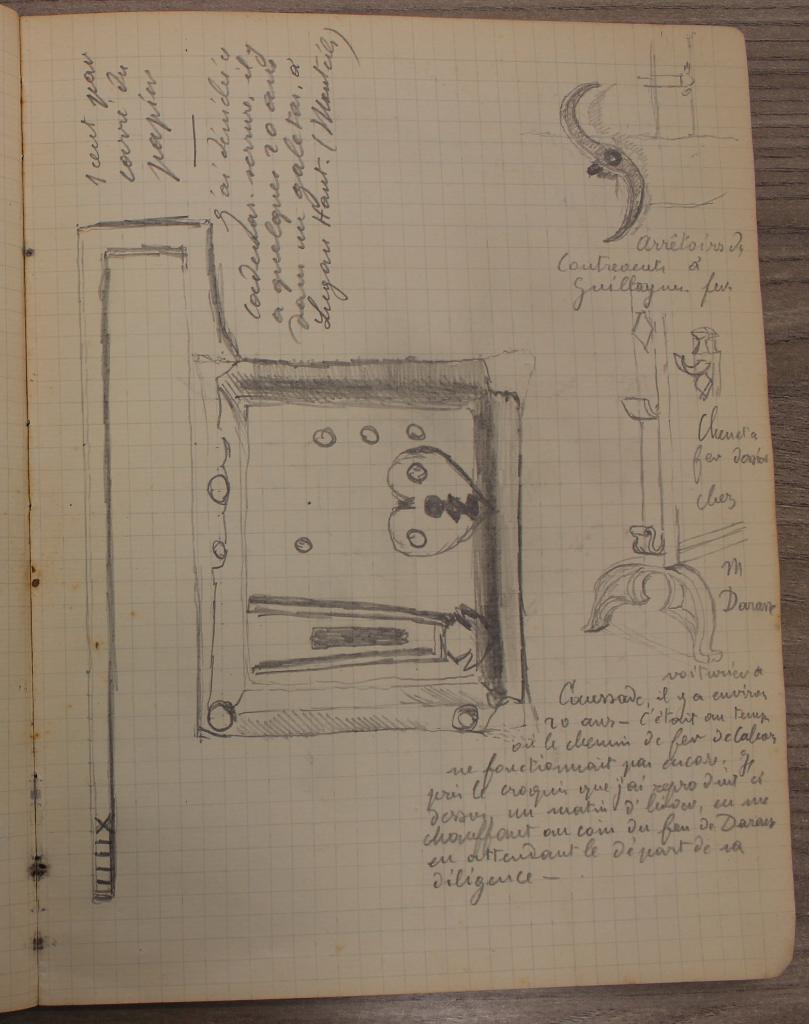 1 cent par
carré du
papier
J'ai dénichée
cadenas-serrure, il y
a quelques 20 ans
dans un galetas, à
Lugan Haut. (Monteils)
Arrêtoirs de
Contrevents à
fer
Chenet à
fer dossier
chez
M
Daram
voiturier à
Caussade, il y a environ
20 ans — C'était au temps
où le chemin de fer de Cahors
ne fonctionnait pas encore. Je
pris le croquis que j'ai reproduit ci
dessus, un matin d'hiver, en me
chauffant au coin du feu de Daram
en attendant le départ de sa
diligence —